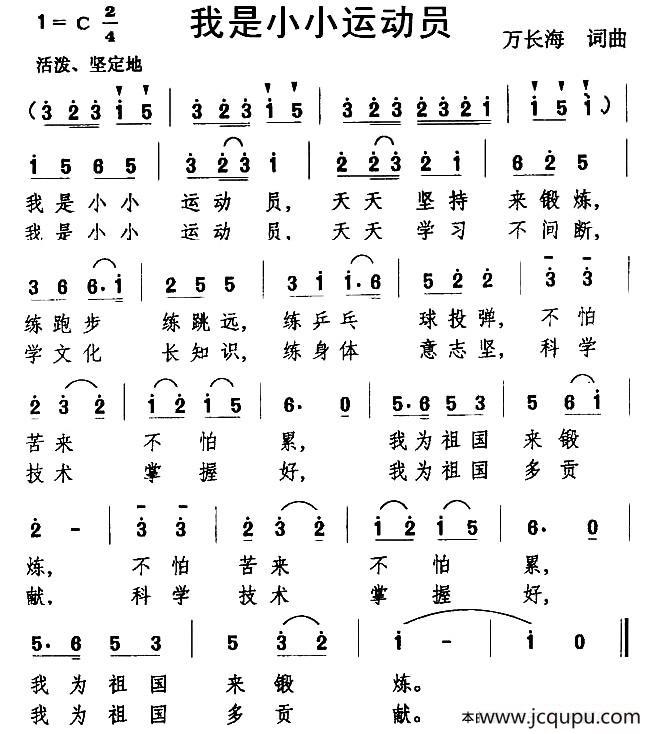 1=C 2/4 我是小小运动员 万长海 词曲
活泼、坚定地
(3 2 3 1 5 | 3 2 3 1 5 | 3 2 3 2 3 2 1 | 1 5 1 )
1 5 6 5 | 3 2 3 1 | 2 2 3 2 1 | 6 2 5 |
我是小小 运动员, 天天坚持 来锻炼,
我是小小 运动员, 天天学习 不间断,
3 6 6· 1 | 2 5 5 | 3 1 1· 6 | 5 2 2 | 3 3 |
练跑步 练跳远, 练乒乓 球投弹, 不怕
学文化 长知识, 练身体 意志坚, 科学
2 3 2 | 1 2 1 5 | 6· 0 | 5· 6 5 3 | 5 6 1 |
苦来 不怕 累, 我为祖国 来锻
技术 掌握 好, 我为祖国 多贡
2 - | 3 3 | 2 3 2 | 1 2 1 5 | 6· 0 |
炼, 不怕 苦来 不怕 累,
献, 科学 技术 掌握 好,
5· 6 5 3 | 5 3 2 | 1 - | 1 0 ‖
我为祖国 来锻 炼。
我为祖国 多贡 献。
本 www.jcqupu.com